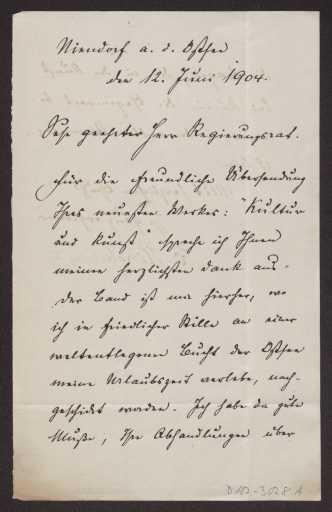 Niendorf a. d. Ostsee
den 12. Juni 1904.
Sehr geehrter Herr Regierungsrat.
Für die freundliche Übersendung
Ihres neuesten Werkes: "Kultur
und Kunst" spreche ich Ihnen
meinen herzlichsten Dank aus.
Der Band ist mir hierher, wo
ich in friedlicher Stille an einer
weltentlegenen Bucht der Ostsee
meine Urlaubszeit verlebe, nach-
geschickt worden. Ich habe da gute
Muße, Ihre Abhandlungen über
D 182-3028 A